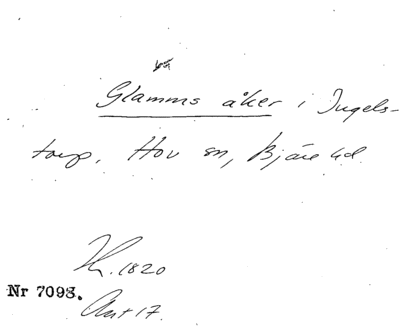 Glamms åker i Ingels-
torp. Hov sn, Bjäre hd
1820
Nr 7098.
Ant 17.